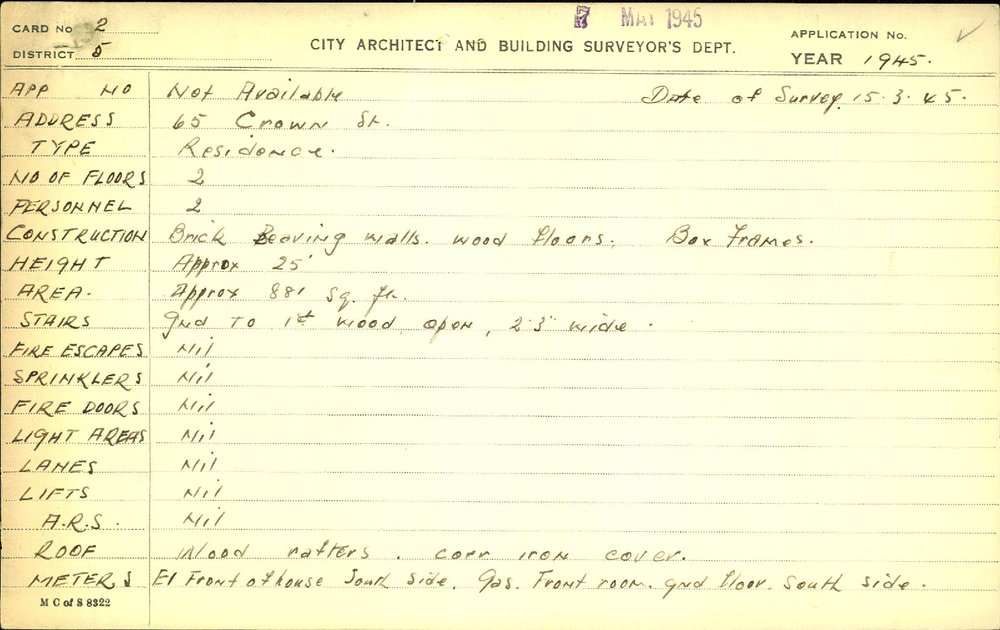 7 MAY 1945
CARD No 2
DISTRICT 5
CITY ARCHITECT AND BUILDING SURVEYOR'S DEPT.
APPLICATION No.
YEAR 1945.
APP NO Not Available Date of Survey 15.3.45.
ADDRESS 65 Crown St.
TYPE Residence.
NO OF FLOORS 2
PERSONNEL 2
CONSTRUCTION Brick Beaving walls. wood floors. Box Frames.
HEIGHT Approx 25'
AREA. Approx 881 Sq. ft.
STAIRS gnd to 1st wood, open, 2'3" wide.
FIRE ESCAPES Nil
SPRINKLERS Nil
FIRE DOORS Nil
LIGHT AREAS Nil
LANES Nil
LIFTS Nil
A.R.S. Nil
ROOF Wood rafters. corr iron cover.
METERS El Front of house South side. Gas. Front room. gnd floor. South side.
M C of S 8322